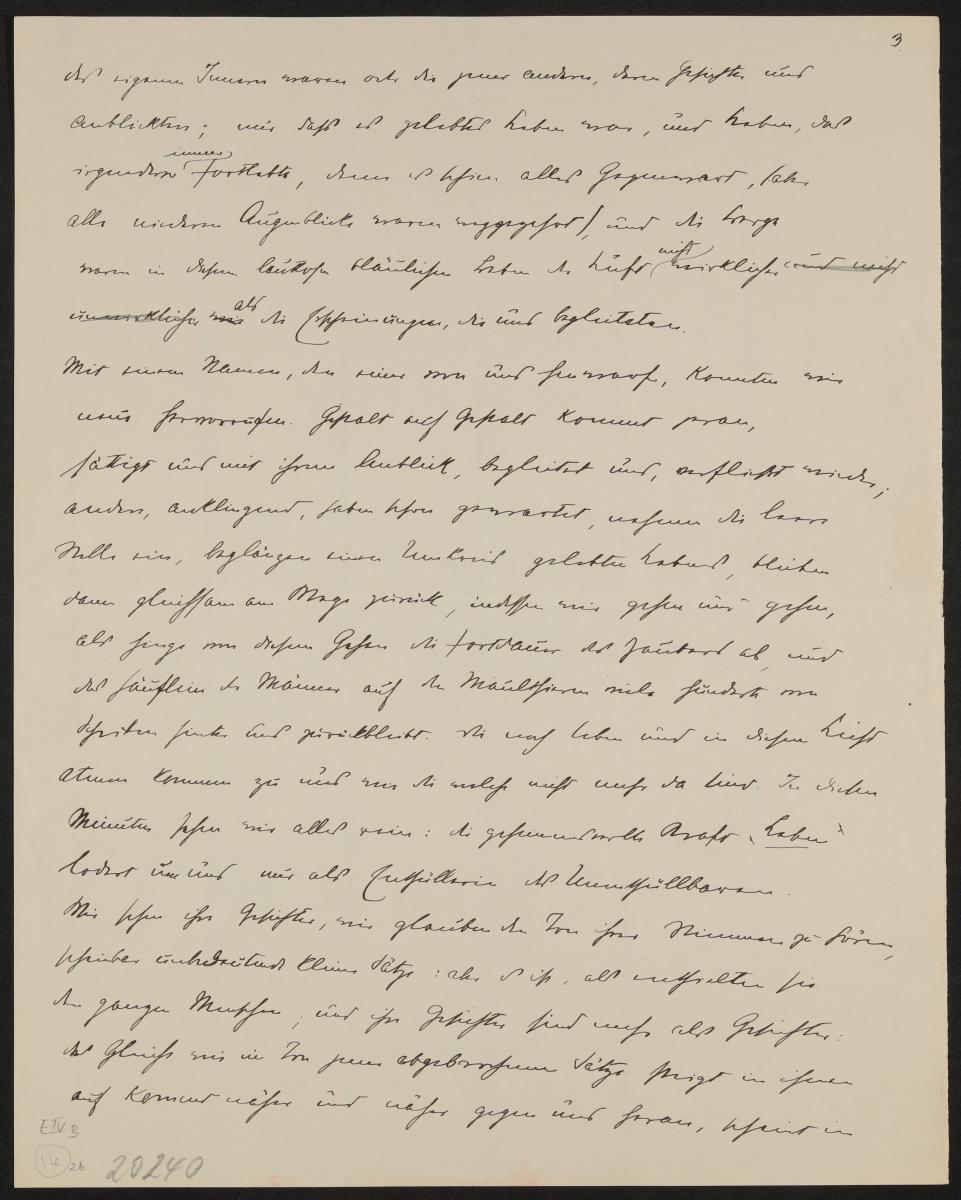 3
des eigenen Innern waren oder die jener andern, deren Gesichter uns
anblickten; nur dass es gelebtes Leben war, und Leben, das
irgendwo immer fortlebte, denn es schien alles Gegenwart, (aber
alle niederen Augenblicke waren weggezehrt) und die Berge
waren in diesem lautlosen bläulichen Leben der Luft nicht wirklicher und nicht
unwirklicher wie als die Erscheinungen, die uns begleiteten.
Mit einem Namen, den einer von uns hinwarf, konnten wir
neue hervorrufen. Gestalt auf Gestalt kommt heran,
sättigt uns mit ihrem Anblick, begleitet uns, verfliesst wieder;
andere, anklingend, haben schon gewartet, nehmen die leere
Stelle ein, beglänzen einen Umkreis gelebten Lebens, bleiben
dann gleichsam am Wege zurück, indessen wir gehen und gehen,
als hinge von diesem Gehen die Fortdauer des Zaubers ab, und
das Häuflein der Männer auf den Maultieren viele hunderte von
Schritten hinter uns zurückbleibt. Die noch leben und in diesem Licht
atmen kommen zu uns wie die welche nicht mehr da sind. In diesen
Minuten sehen wir alles rein: die geheimnisvolle Kraft „Leben“
lodert um uns nur als Enthüllerin des Unenthüllbaren.
Wir sehen ihre Gesichter, wir glauben den Ton ihrer Stimmen zu hören,
scheinbar unbedeutende kleine Sätze: aber es ist, als enthielten sie
den ganzen Menschen, und ihre Gesichter sind mehr als Gesichter:
das Gleiche wie im Ton jener abgebrochenen Sätze steigt in ihnen
auf kommt näher und näher gegen uns heran, scheint in
E IV B
16 26
20240